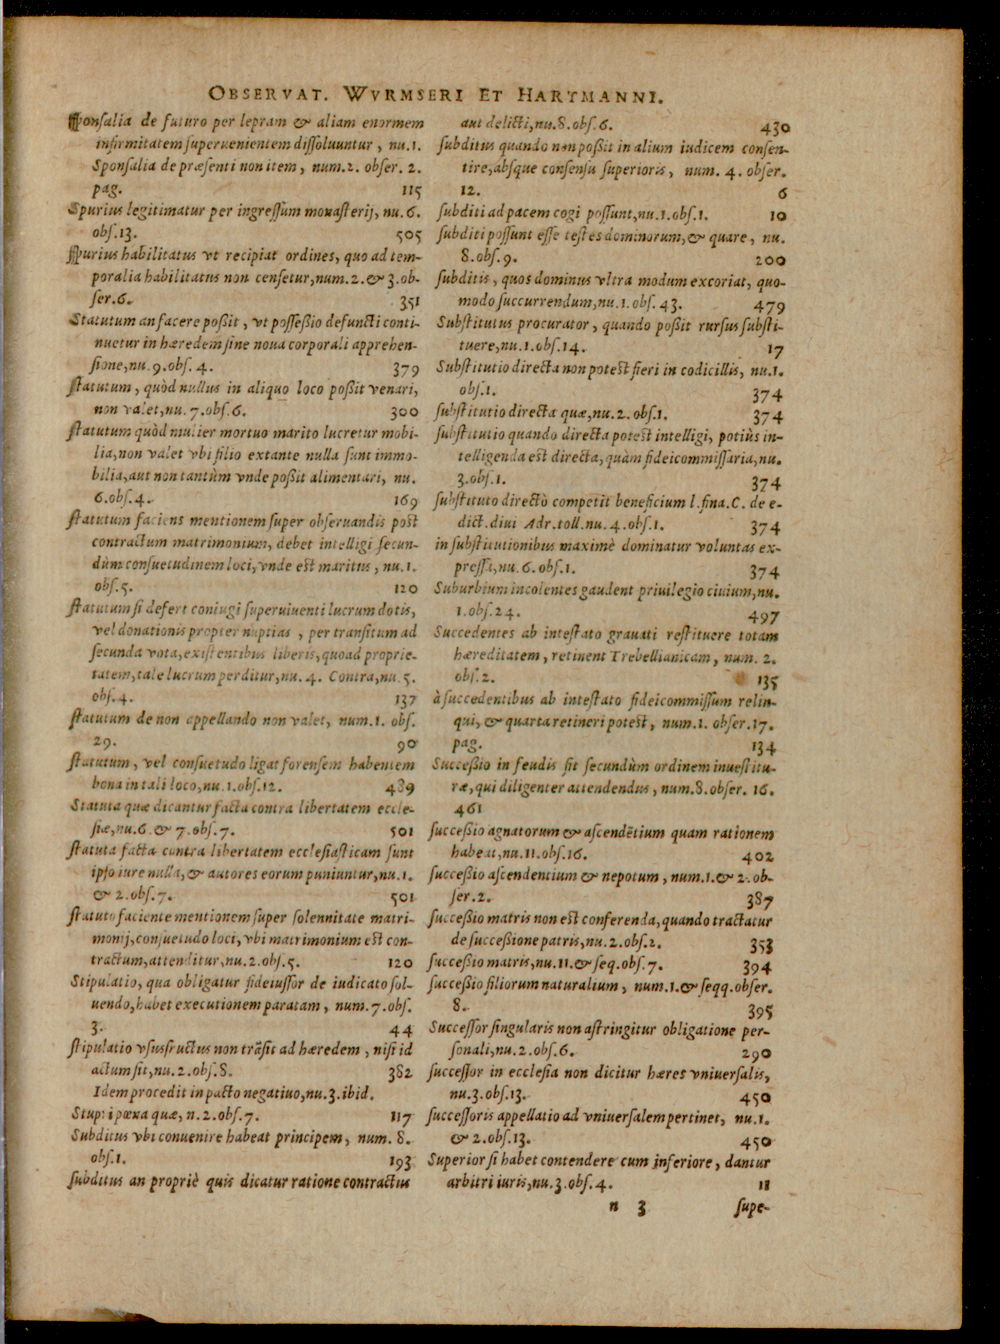 OBSERVAT. WVRMSERI ET HARTMANNI.
Sponsalia de futuro per lepram & aliam enormem
infirmitatem superuenientem dissoluuntur, nu.1.
Sponsalia de præsenti non item, num.2. obser. 2.
pag. 115
Spurius legitimatur per ingressum monasterij, nu. 6.
obs.13. 505
Spurius habilitatus vt recipiat ordines, quo ad tem-
poralia habilitatus non censetur, num.2.& 3.ob-
ser.6. 351
Statutum an facere poßit, vt posseßio defuncti conti-
nuetur in hæredem sine noua corporali apprehen-
sione, nu.9.obs. 4. 379
statutum, quòd nullus in aliquo loco poßit venari,
non valet, nu. 7.obs.6. 300
statutum quòd mulier mortuo marito lucretur mobi-
lia, non valet vbi filio extante nulla sunt immo-
bilia, aut non tantùm vnde poßit alimentari, nu.
6.obs.4. 169
statutum faciens mentionem super obseruandis post
contractum matrimonium, debet intelligi secun-
dùm consuetudinem loci, vnde est maritus, nu.1.
obs.5. 120
statutum si defert coniugi superuiuenti lucrum dotis,
vel donationis propter nuptias, per transitum ad
secunda vota, existentibus liberis, quoad proprie-
tatem, tale lucrum perditur, nu. 4. Contra, nu.5.
obs.4. 137
statutum de non appellando non valet, num.1. obs.
29. 90
statutum, vel consuetudo ligat forensem habentem
bona in tali loco, nu.1.obs.12. 489
Statuta quæ dicantur facta contra libertatem eccle-
siæ, nu.6.& 7.obs.7. 501
statuta facta contra libertatem ecclesiasticam sunt
ipso iure nulla, & autores eorum puniuntur, nu.1.
& 2.obs.7. 501
statuto faciente mentionem super solennitate matri-
monij, consuetudo loci, vbi matrimonium est con-
tractum, attenditur, nu.2.obs.5. 120
Stipulatio, qua obligatur fideiussor de iudicato sol-
uendo, habet executionem paratam, num.7.obs.
3. 44
stipulatio vsusfructus non trãsit ad hæredem, nisi id
actum sit, nu.2.obs.8. 382
Idem procedit in pacto negatiuo, nu.3.ibid.
Stupri pœna quæ, n.2.obs.7. 117
Subditus vbi conuenire habeat principem, num. 8.
obs.1. 193
subditus an propriè quis dicatur ratione contractus
aut delicti, nu.8.obs.6. 430
subditus quando non poßit in alium iudicem consen-
tire, absque consensu superioris, num. 4. obser.
12. 6
subditi ad pacem cogi possunt, nu.1.obs.1. 10
subditi possunt esse testes dominorum, & quare, nu.
8.obs.9. 200
subditis, quos dominus vltra modum excoriat, quo-
modo succurrendum, nu.1.obs.43. 479
Substitutus procurator, quando poßit rursus substi-
tuere, nu.1.obs.14. 17
Substitutio directa non potest fieri in codicillis, nu.1.
obs.1. 374
substitutio directa quæ, nu.2.obs.1. 374
substitutio quando directa potest intelligi, potiùs in-
telligenda est directa, quàm fideicommissaria, nu.
3.obs.1. 374
substituto directò competit beneficium l.fina.C. de e-
dict.diui Adr.toll.nu.4.obs.1. 374
in substitutionibus maximè dominatur voluntas ex-
pressa, nu.6.obs.1. 374
Suburbium incolentes gaudent priuilegio ciuium, nu.
1.obs.24. 497
Succedentes ab intestato grauati restituere totam
hæreditatem, retinent Trebellianicam, num. 2.
obs.2. 135
à succedentibus ab intestato fideicommissum relin-
qui, & quarta retineri potest, num.1. obser.17.
pag. 134
Succeßio in feudis fit secundùm ordinem inuestitu-
ræ, qui diligenter attendendus, num.8.obser. 16.
461
succeßio agnatorum & ascendẽtium quam rationem
habeat, nu.11.obs.16. 402
succeßio ascendentium & nepotum, num.1.& 2.ob-
ser.2. 387
succeßio matris non est conferenda, quando tractatur
de succeßione patris, nu.2.obs.2. 353
succeßio matris, nu.11.& seq.obs.7. 394
succeßio filiorum naturalium, num.1.& seqq.obser.
8. 395
Successor singularis non astringitur obligatione per-
sonali, nu.2.obs.6. 290
successor in ecclesia non dicitur hæres vniuersalis,
nu.3.obs.13. 450
successoris appellatio ad vniuersalem pertinet, nu.1.
& 2.obs.13. 450
Superior si habet contendere cum inferiore, dantur
arbitri iuris, nu.3.obs.4. 11
n 3 supe-